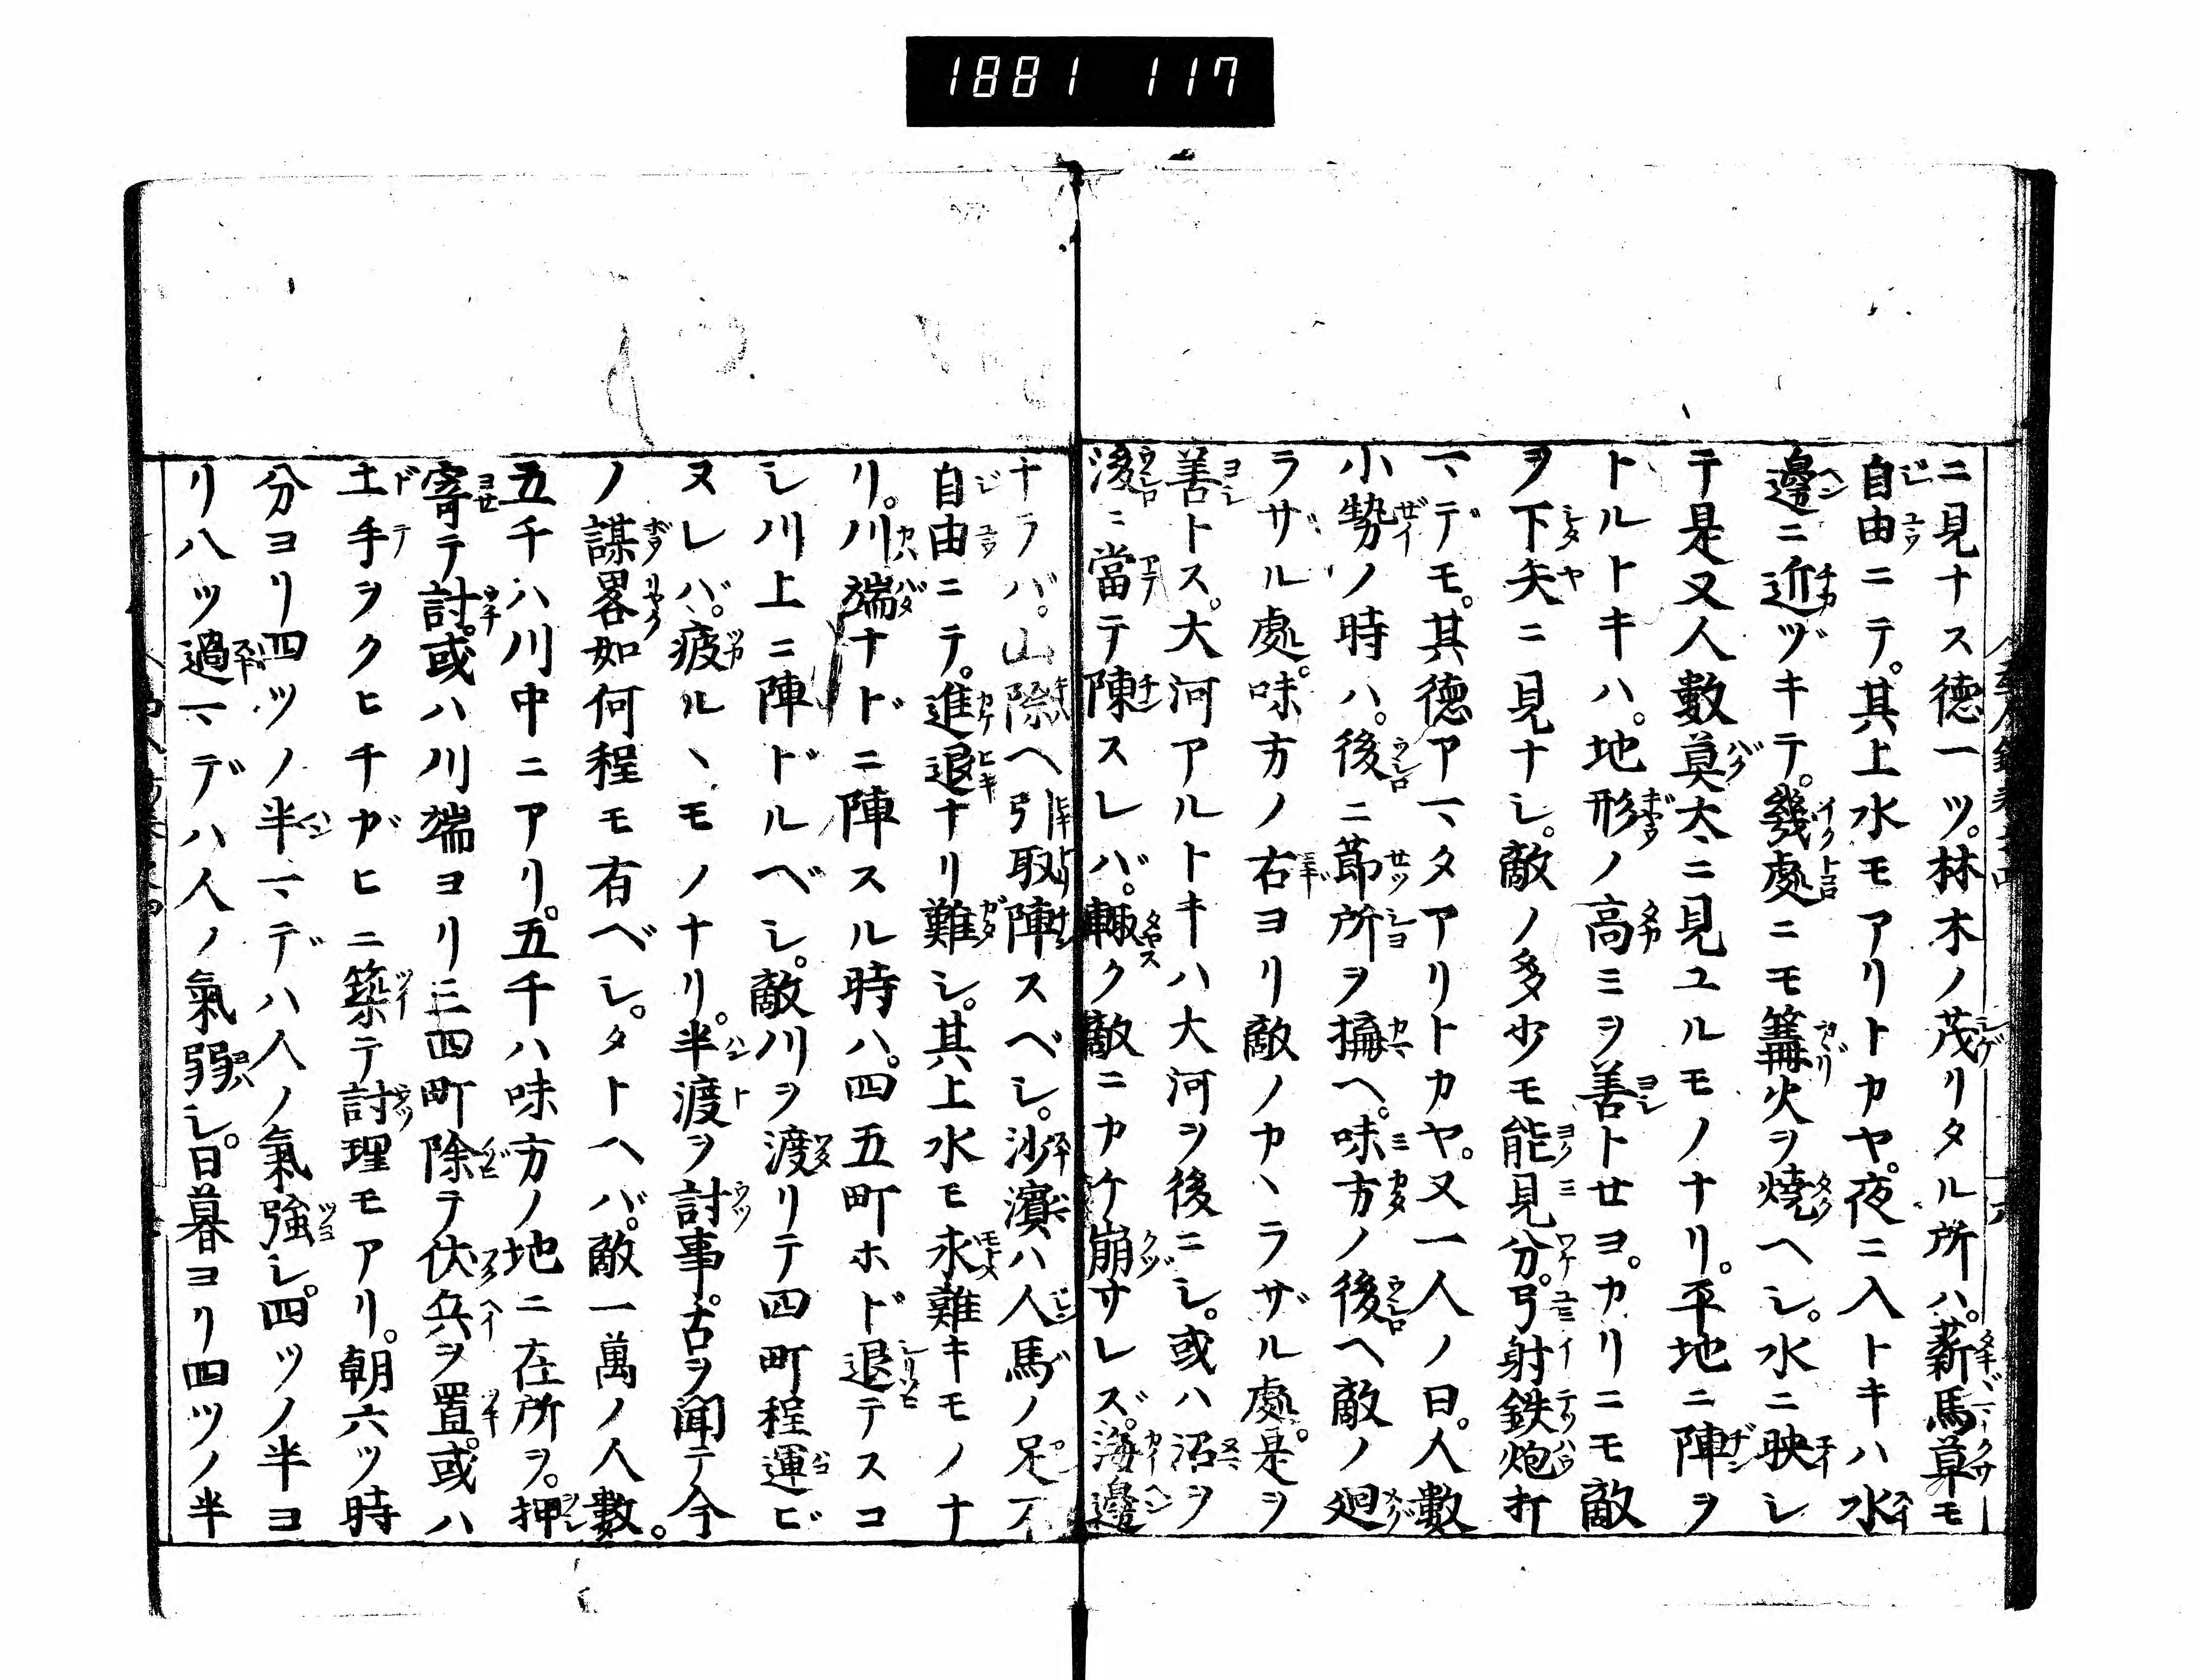 1881 117
ニ見ナス徳一ツ。林木ノ茂リタル所ハ。薪馬草モ
自由ニテ。其上水モアリトカヤ。夜ニ入トキハ水
邊ニ近ヅキテ。幾處ニモ篝火ヲ焼ヘシ。水ニ映シ
テ是又人數莫大ニ見ユルモノナリ。平地ニ陣ヲ
トルトキハ。地形ノ高ミヲ善トセヨ。カリニモ敵
ヲ下矢ニ見ナシ。敵ノ多少モ能見分。弓射鉄炮打
マデモ。其徳アマタアリトカヤ。又一人ノ曰。人數
小勢ノ時ハ。後ニ莭所ヲ搆ヘ。味方ノ後ヘ敵ノ廻
ラザル處。味方ノ右ヨリ敵ノカヽラザル處。是ヲ
善トス。大河アルトキハ大河ヲ後ニシ。或ハ沼ヲ
後ニ當テ陳スレバ。輙ク敵ニカケ崩サレズ。海邊
ナラバ。山際ヘ引取陣スベシ。沙濱ハ人馬ノ足不
自由ニテ。進退ナリ難シ。其上水モ求難キモノナ
リ。川端ナドニ陣スル時ハ。四五町ホド退テスコ
シ川上ニ陣ドルベシ。敵川ヲ渡リテ四町程運ビ
ヌレバ。疲ルヽモノナリ。半渡ヲ討事。古ヲ聞テ今
ノ謀畧如何程モ有ベシ。タトヘバ。敵一萬ノ人數。
五千ハ川中ニアリ。五千ハ味方ノ地ニ在所ヲ。押
寄テ討。或ハ川端ヨリ三四町除テ伏兵ヲ置。或ハ
土手ヲクヒチガヒニ築テ討理モアリ。朝六ツ時
分ヨリ四ツノ半マデハ人ノ氣強シ。四ツノ半ヨ
リ八ツ過マデハ人ノ氣弱シ。日暮ヨリ四ツノ半